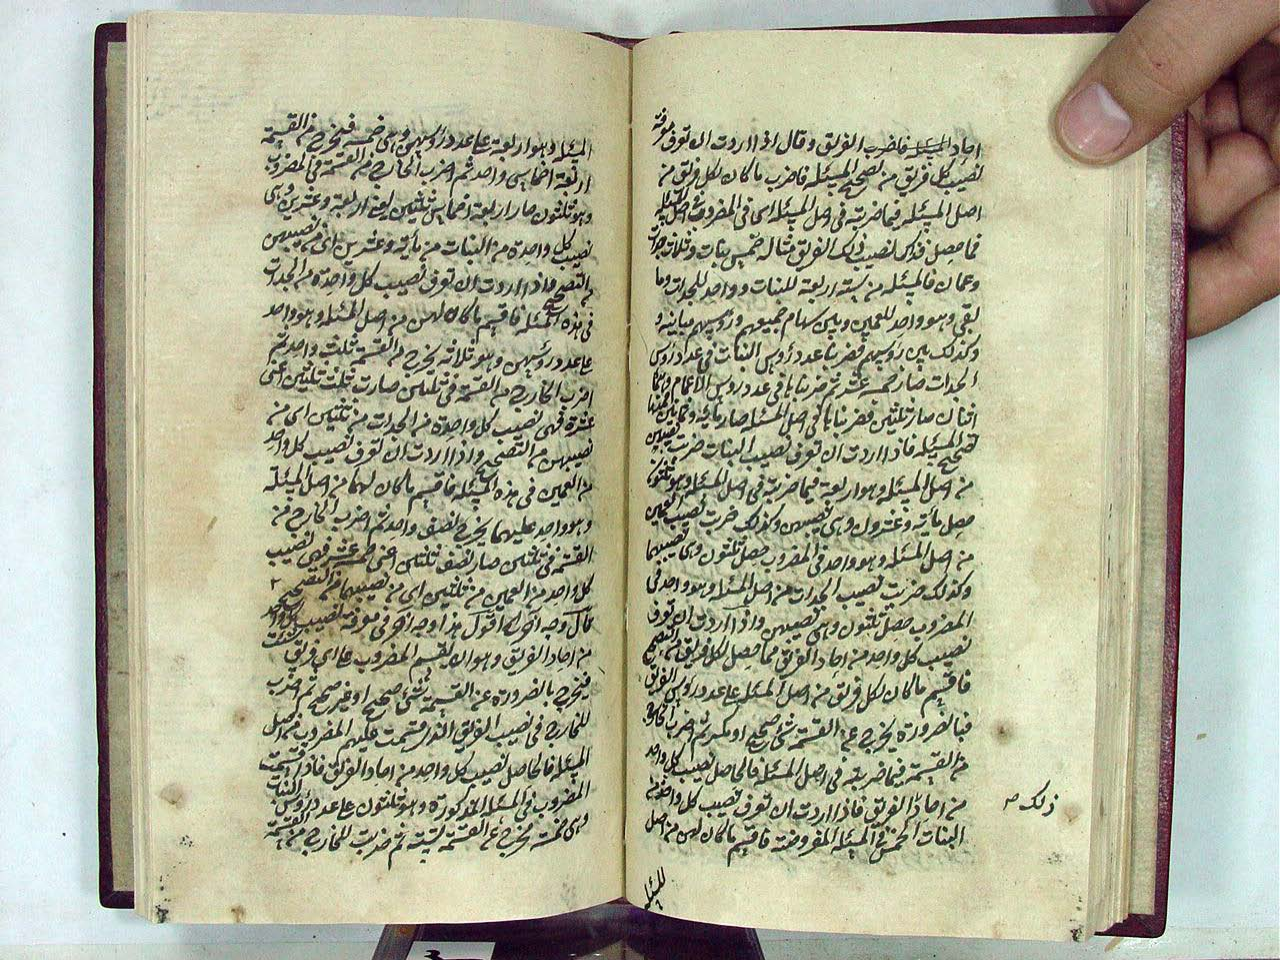 احاد المسئلة فاضرب الفريق وقال اذا اردت ان تعرف معرفة
نصيب كل فريق من تصحيح المسئله فاضرب ما كان لكل فريق من
اصل المسئله فيما ضربته في اصل المسئله اى في المضروب في اصل المسئله
فما حصل فذاك نصيب ذلك الفريق مثاله خمس بنات وثلاث جدات
وعمان فالمسئله من ستة اربعة للبنات وواحد للجدات وما
بقي وهو واحد للعمين وبين سهام جميعهم ورؤسهم مباينة و
وكذلك بين رؤسهم فضربنا عدد رؤس البنات في عدد رؤس
الجدات صار خمسة عشر ثم ضربناها في عدد رؤس الاعمام وهما
اثنان صار ثلثين فضربناها في اصل المسئله صار مائة وثمانين فمنها
تصحيح المسئله فاذا اردت ان تعرف نصيب البنات ضربت نصيبهن
من اصل المسئله وهو اربعة فيما ضربته في اصل المسئله وهو ثلثون
حصل مأية وعشرون وهي نصيبهن وكذلك ضربت نصيب العمين
من اصل المسئله وهو واحد في المضروب حصل ثلثون وهي نصيبهما
وكذلك ضربت نصيب الجدات من اصل المسئله وهو واحد في
المضروب حصل ثلثون وهي نصيبهن واذا اردت ان تعرف
نصيب كل واحد من احاد الفريق مما حصل لكل فريق من التصحيح
فاقسم ما كان لكل فريق من اصل المسئله على عدد رؤس الفريق
فبالضرورة يخرج عن القسمة شئ صحيح او كسر ثم اضرب الخارج
من القسمة فيما ضربته في اصل المسئلة فالحاصل نصيب كل واحد
من احاد الفريق فاذا اردت ان تعرف نصيب كل واحدة من
البنات الخمس في المسئله المفروضة فاقسم ما كان لهن من اصل
ذلك
المسئله
المسئله وهو اربعة على عدد رؤسهن وهي خمسة فيخرج من القسمة
اربعة اخماس واحد ثم اضرب الخارج من القسمة في المضروب
وهو ثلثون صار اربعة اخماس ثلثين اعني اربعة وعشرين وهي
نصيب كل واحدة من البنات من مأية وعشرين اى من نصيبهن
من التصحيح فاذا اردت ان تعرف نصيب كل واحدة من الجدات
في هذه المسئله فاقسم ما كان لهن من اصل المسئله وهو واحد
على عدد رؤسهن وهو ثلاثة يخرج من القسمة ثلث واحد ثم
اضرب الخارج من القسمة في ثلثين صارت ثلث ثلثين اعني
عشرة فهي نصيب كل واحدة من الجدات من ثلثين اى من
نصيبهن من التصحيح واذا اردت ان تعرف نصيب كل واحد
من العمين في هذه المسئله فاقسم ما كان لهما من اصل المسئلة
وهو واحد عليهما يخرج نصف واحد ثم اضرب الخارج من
القسمة في ثلثين صار نصف ثلثين اعني خمسة عشر فهي نصيب
كل واحد من العمين من ثلثين اى من نصيبهما من التصحيح
قال وجه آخر اقول هذا وجه آخر في معرفة نصيب كل واحد
من احاد الفريق وهو ان تقسم المضروب على اي فريق شئت
فيخرج بالضرورة عن القسمة شئ صحيح او غير صحيح ثم اضرب
الخارج في نصيب الفريق الذي قسمت عليهم المضروب من اصل
المسئله فالحاصل نصيب كل واحد من احاد الفريق فاذا قسمت
المضروب في المسئله المذكورة وهو ثلثون على عدد رؤس البنات
وهي خمسة يخرج عن القسمة ستة ثم ضربت الخارج من القسمة